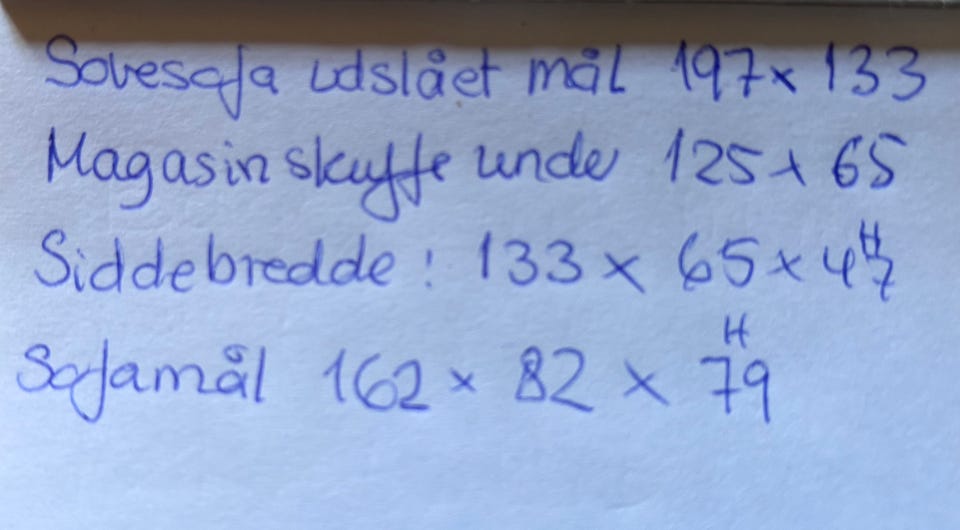 Sovesofa udslået mål 197x133
Magasin skuffe unde 125x65
Siddebredde: 133 x 65 x 47 H
Sofamål 162 x 82 x 79 H